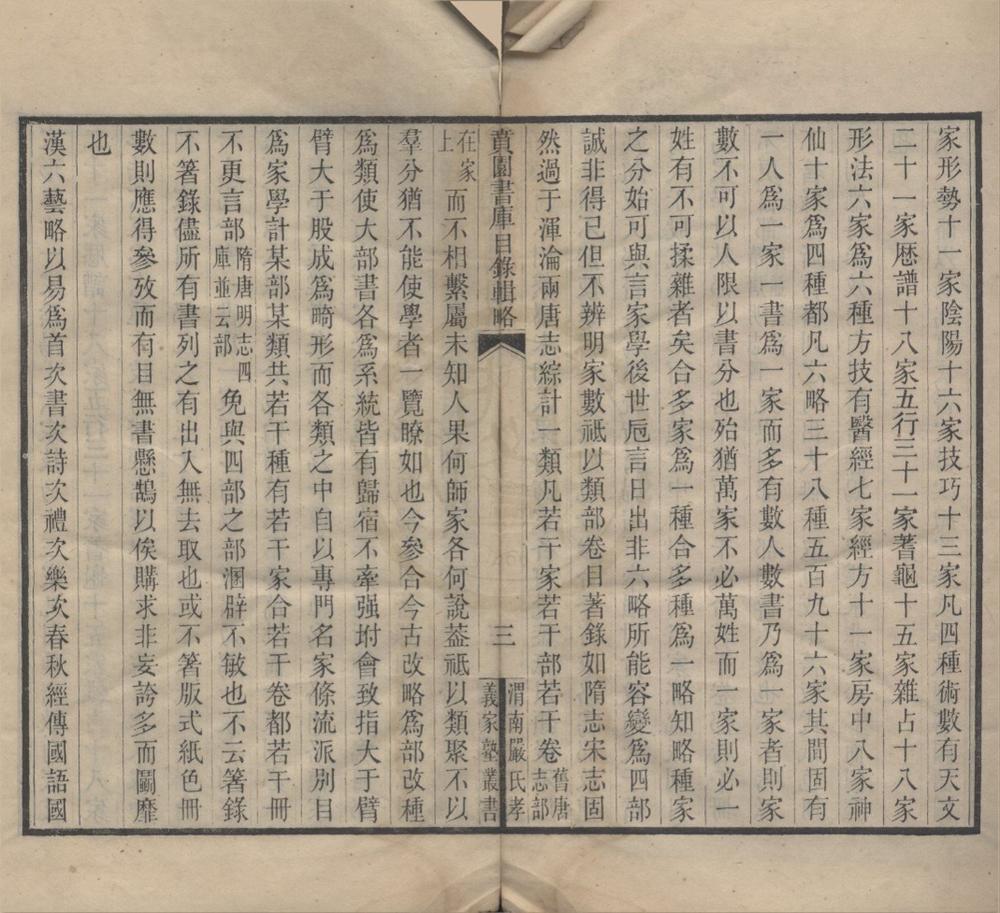 家形勢十一家陰陽十六家技巧十三家凡四種術數有天文
二十一家厯譜十八家五行三十一家蓍龜十五家雜占十八家
形法六家爲六種方技有醫經七家經方十一家房中八家神
仙十家爲四種都凡六略三十八種五百九十六家其間固有
一人爲一家一書爲一家而多有數人數書乃爲一家者則家
數不可以人限以書分也殆猶萬家不必萬姓而一家則必一
姓有不可揉雜者矣合多家爲一種合多種爲一略知略種家
之分始可與言家學後世卮言日出非六略所能容變爲四部
誠非得已但不辨明家數祗以類部卷目著錄如隋志宋志固
然過于渾淪兩唐志綜計一類凡若干家若干部若干卷舊唐志部
賁園書庫目錄輯略
三
渭南嚴氏孝義家塾叢書
在家上而不相繫屬未知人果何師家各何說葢祗以類聚不以
羣分猶不能使學者一覽瞭如也今參合今古改略爲部改種
爲類使大部書各爲系統皆有歸宿不牽强坿會致指大于臂
臂大于股成爲畸形而各類之中自以專門名家條流派別目
爲家學計某部某類共若干種有若干家合若干卷都若干冊
不更言部隋唐明志四庫並云部免與四部之部溷辟不敏也不云箸錄
不箸錄儘所有書列之有出入無去取也或不箸版式紙色冊
數則應得參攷而有目無書懸鵠以俟購求非妄誇多而鬬靡
也
漢六藝略以易爲首次書次詩次禮次樂次春秋經傳國語國